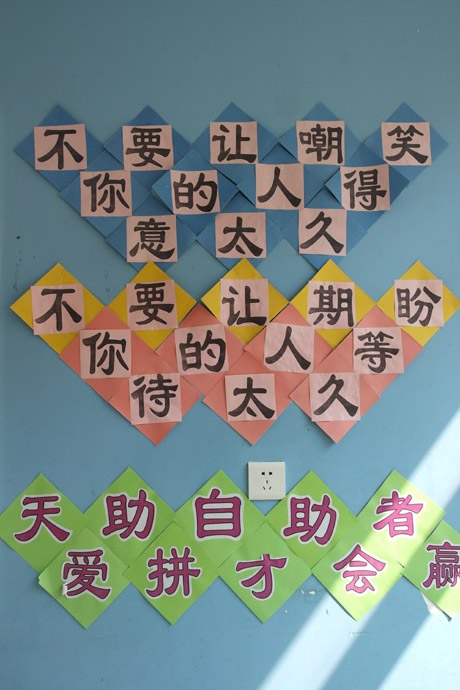 不要让嘲笑
你的人得
意太久
不要让期盼
你的人等
待太久
天助自助者
爱拼才会赢